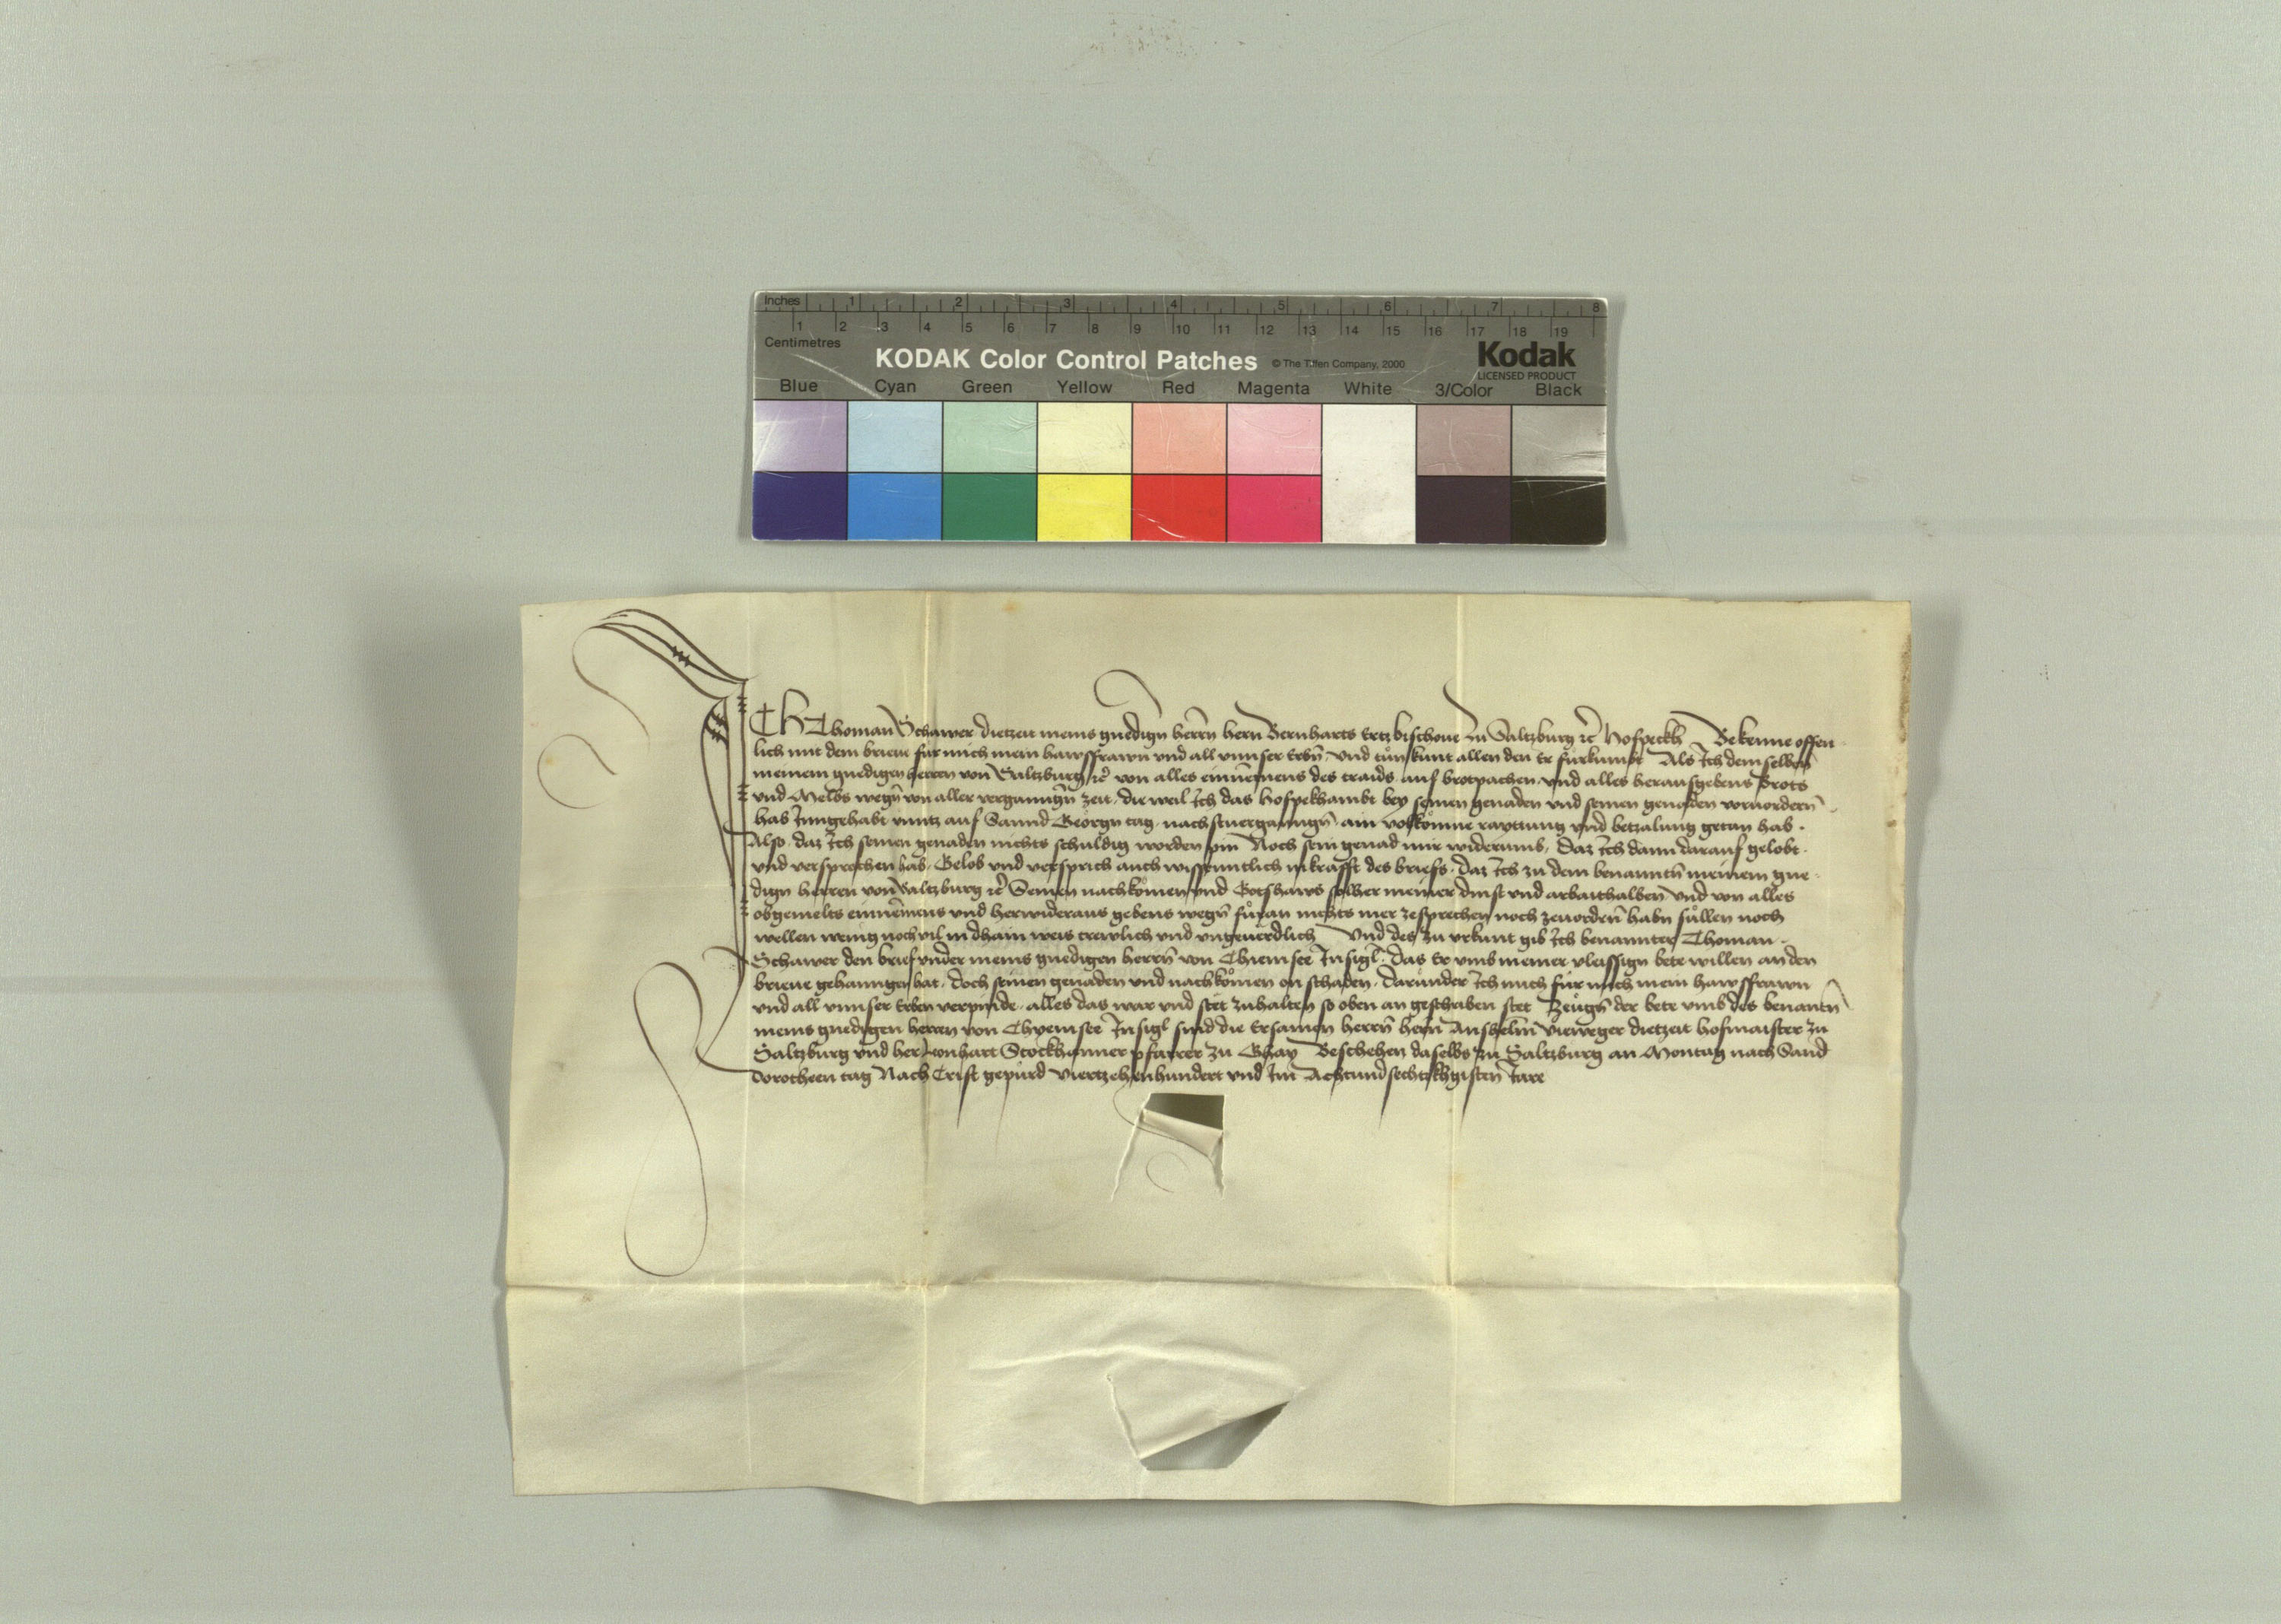 Inches 1 2 3 4 5 6 7 8
1 2 3 4 5 6 7 8 9 10 11 12 13 14 15 16 17 18 19
Centimetres
KODAK Color Control Patches © The Tiffen Company, 2000 Kodak
LICENSED PRODUCT
Blue Cyan Green Yellow Red Magenta White 3/Color Black
ICH Thoman Schawer dietzeit meins gnedign herrn hern Bernharts Ertzbischoue zu Saltzburg rc Hofpeckh Bekenne offen
lich mit dem brieue für mich mein hawsfrawn vnd all vnnser Erbn̄ vnd tůn kunt allen den Er fürkumbt Als Ich demselben
meinem gnedigen herren von Saltzburg rc von alles einnemens des traids auf brotpachen vnd alles herausgebens Prots
vnd Melbs wegn̄ von aller verganngn̄ zeit, die weil Ich das Hofpekhambt bey seinen genaden vnd seinen genaden voruordern̄
hab Inngehabt vnntz auf Sannd Georgn tag nachstuerganngn̄ ain volkomne rayttung vnd betzalung getan hab.
Also daz Ich seinen genaden nichts schuldig worden pin Noch sein genad mir widerumb, Daz Ich dann darauf gelobt
vnd versprochen hab, Gelob vnd versprich auch wissenntlich in krafft des briefs, daz Ich zu dem benanntn̄ meinem gne
dign herren von Saltzburg rc Seinen nachkomen vnd Gotshaws solher meiner dinst vnd arbaithalben vnd von alles
obgemelts einnemens vnd herwideraus gebens wegn̄ füran nichts mer zesprechen noch zeuordern̄ habn süllen noch
wellen wenig noch vil in dhain weis trewlich vnd vngeuerdlich Vnd des zu vrkunt gib Ich benannter Thoman
Schawer den brief vnder meins gnedigen herrn̄ von Chiemsee Insigl. Das Er vmb meiner vleissign bete willen an den
brieue gehanngen hat, doch seinen genaden vnd nachkomen on schaden, darunder Ich mich für mich mein hawsfrawn
vnd all vnnser Erben verpinde, alles das war vnd stet zuhalten so oben an geschriben stet Zeugn̄ der bete vmb des benantn̄
meins gnedigen herren von Chyemsee Insigl sind die Ersamen herrn̄ hern Anshelm Vieweger dietzeit hofmaister zu
Saltzburg vnd her Leonhart Stockhamer pfarrer zu Ghay Beschehen daselbs zu Saltzburg an Montag nach Sand
Dorotheen tag Nach Crist gepurd Viertzehenhundert vnd Im Achtundsechtzkhgisten Jare